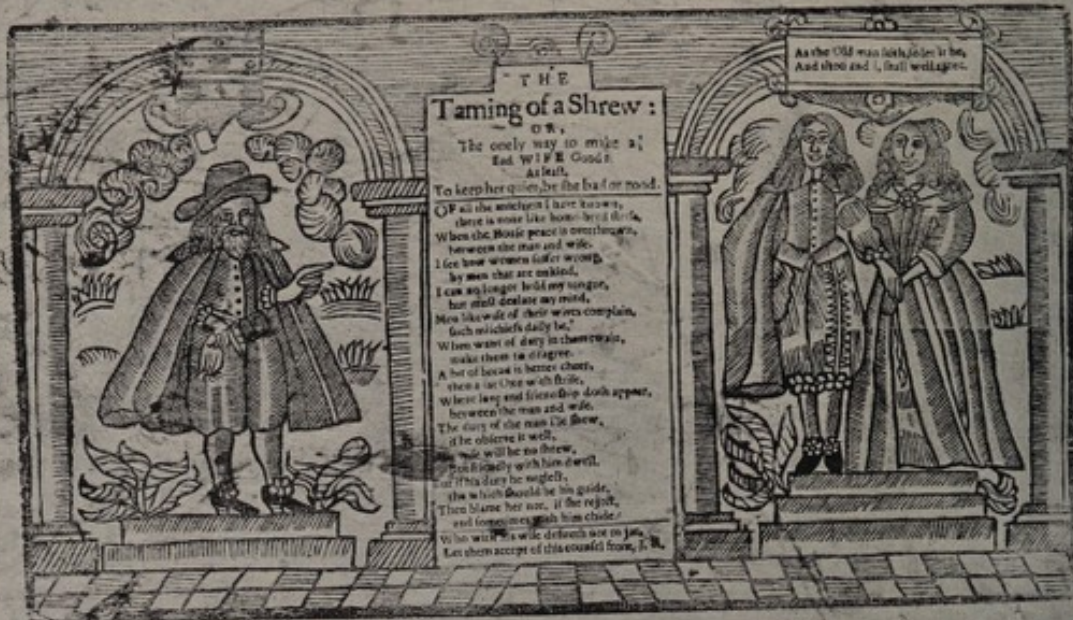 THE
Taming of a Shrew:
OR,
The onely way to make a
Bad WIFE Good:
At least,
To keep her quiet, be she bad or good.
OF all the mischiefs I have known,
there is none like home-bred strife,
When the House peace is overthrown,
between the man and wife.
I see how women suffer wrong,
by men that are unkind,
I can no longer hold my tongue,
but must declare my mind,
Men likewise of their wives complain,
such mischiefs daily be,
When want of duty in them twain,
make them to disagree.
A bit of bread is better cheer,
then a fat Oxe with strife,
Where love and friendship doth appear,
between the man and wife.
The duty of the man I'le shew,
if he observe it well,
wife will be no shrew,
friendly with him dwell.
if his duty he neglect,
the which should be his guide,
Then blame her not, if she reject,
and sometimes with him chide.
Who with his wife desireth not to jar,
Let them accept of this counsel from, J. R.
As the Old man saith, so let it be,
And thou and I, shall well agree.